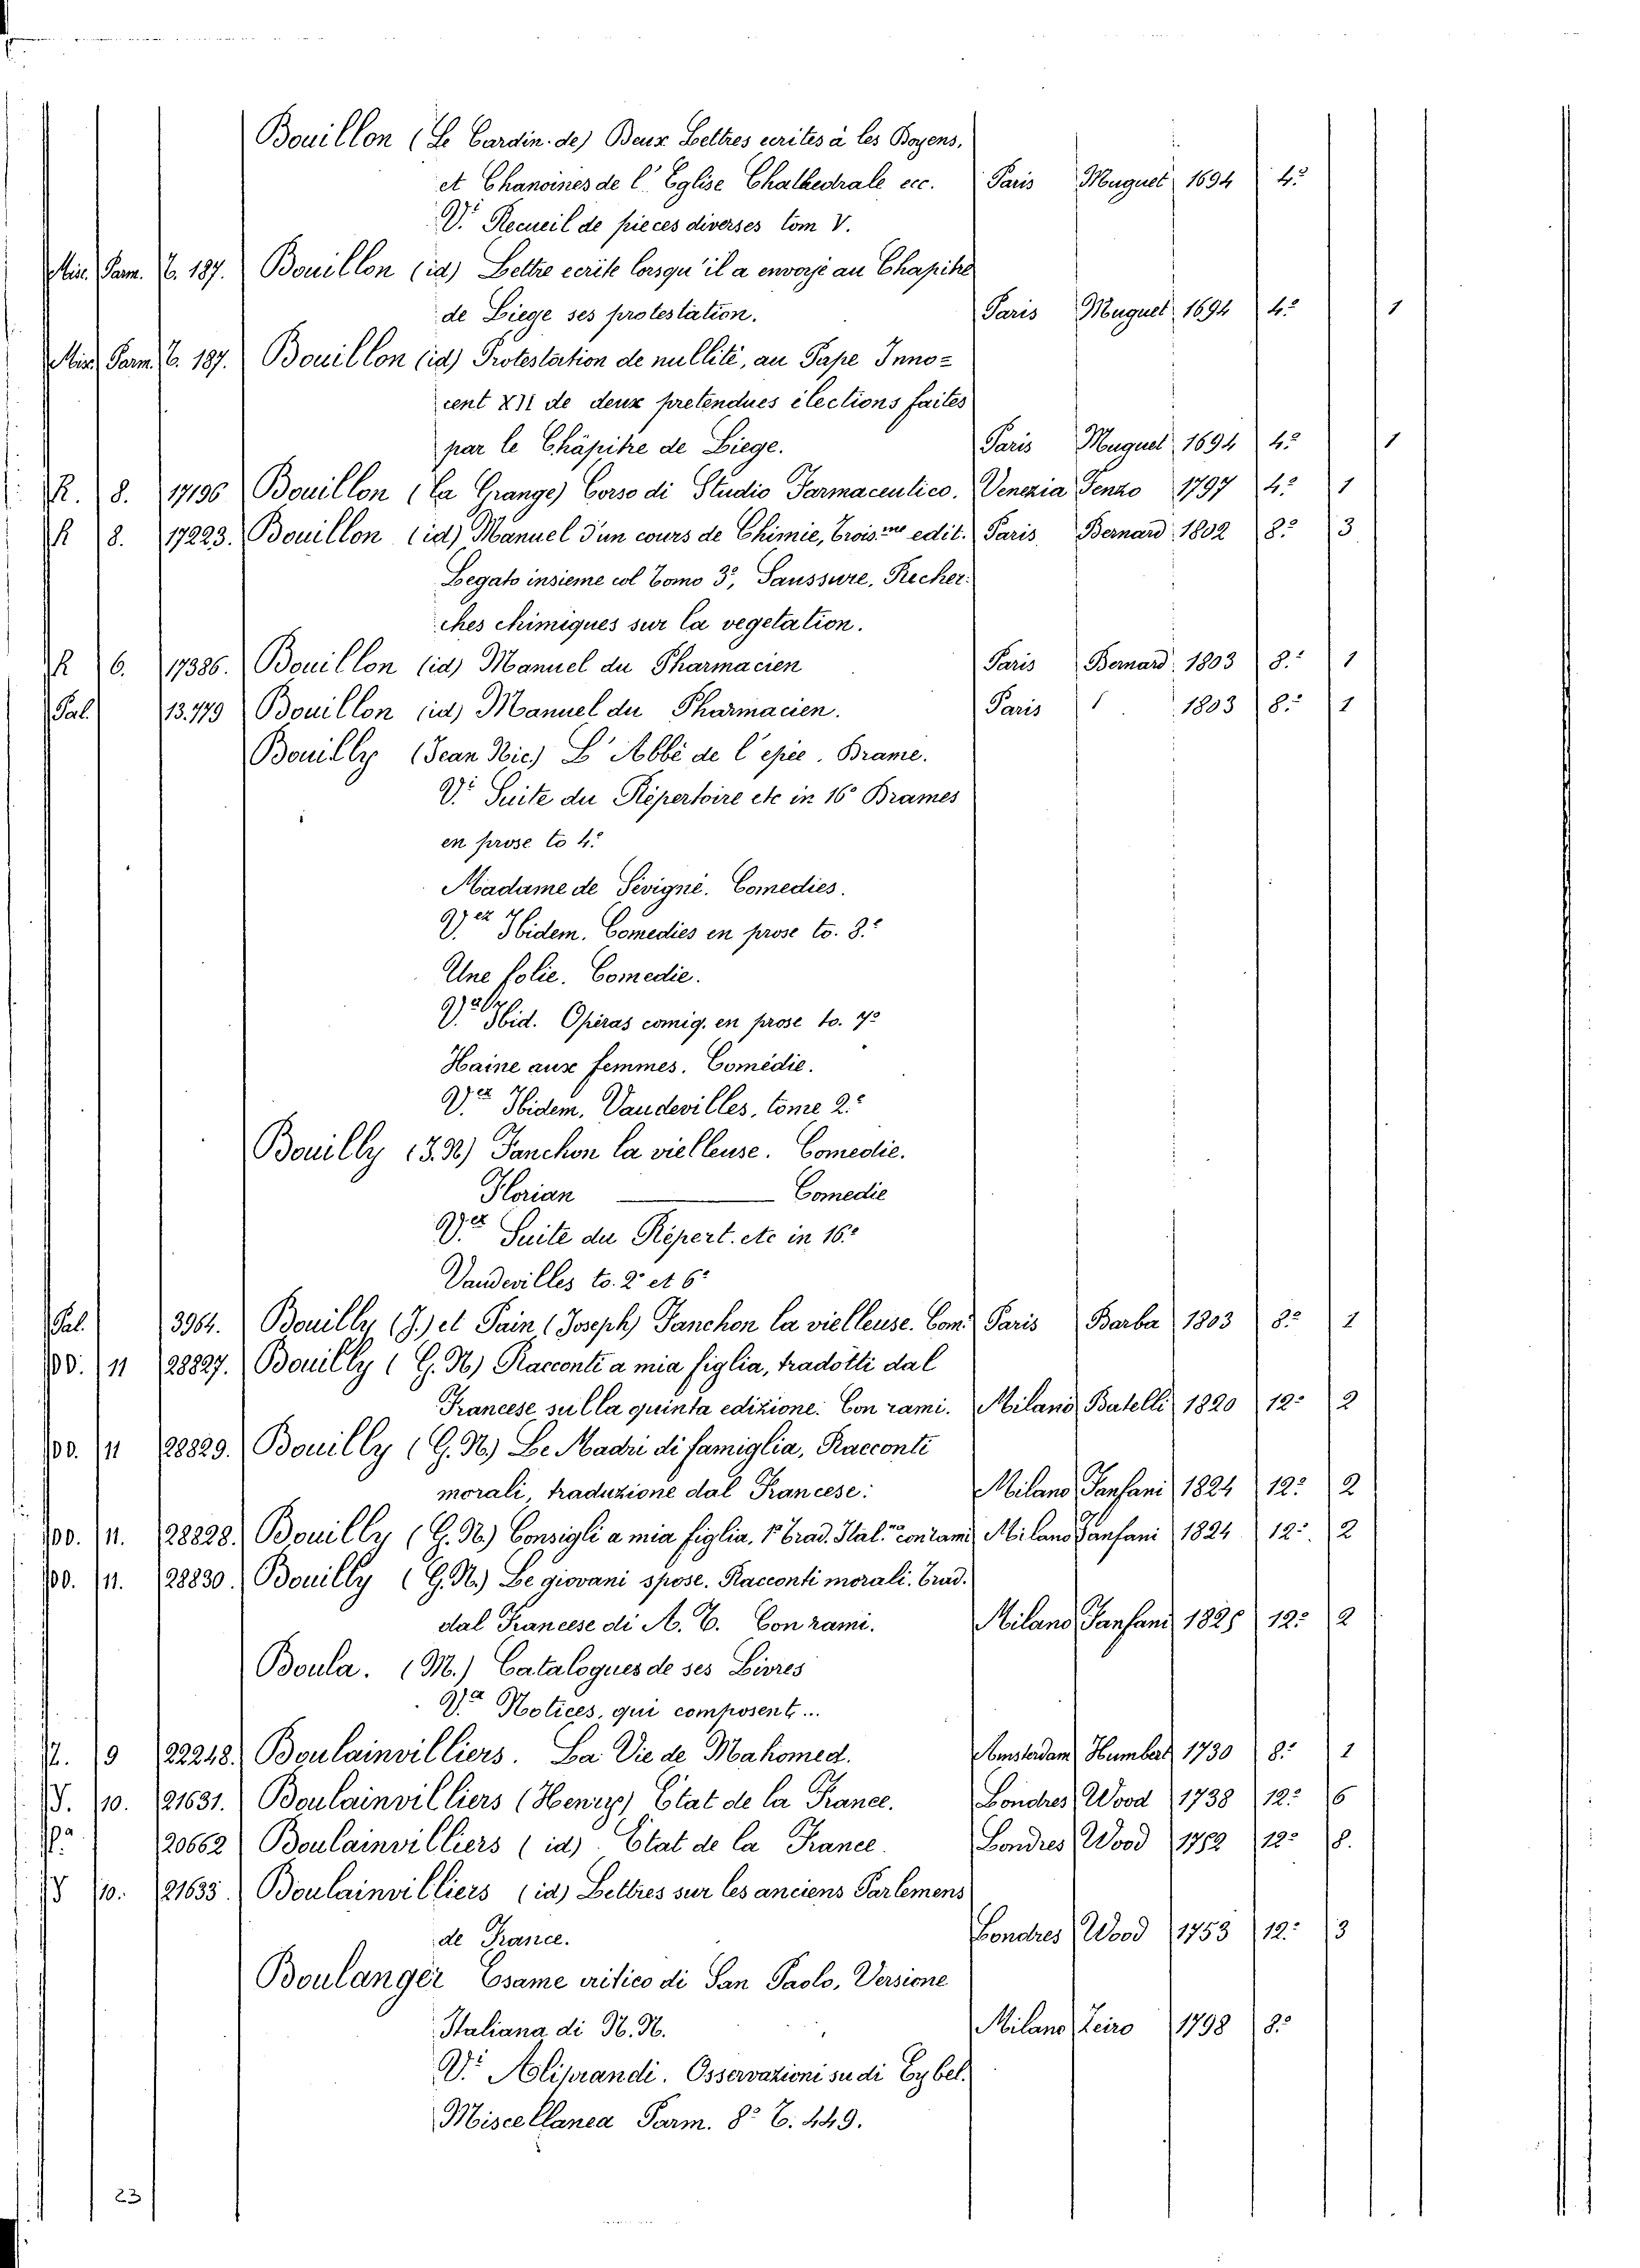 Bouillon (Le Cardin. de) Deux Lettres ecrites à les Doyens,
et Chanoines de l'Eglise Chathedrale ecc. Paris Muguet 1694 4º
V.i Recueil de pieces diverses tom V.
Misc. Parm. T. 187. Bouillon (id) Lettre ecrite lorsqu'il a envoyé au Chapitre
de Liege ses protestation. Paris Muguet 1694 4º 1
Misc. Parm. T. 187. Bouillon (id) Protestation de nullité, au Pape Inno=
cent XII de deux pretendues élections faites
par le Châpitre de Liege. Paris Muguet 1694 4º 1
R. 8. 17196 Bouillon (La Grange) Corso di Studio Farmaceutico. Venezia Fenzo 1797 4º 1
R 8. 17223. Bouillon (id) Manuel d'un cours de Chimie, Trois.me edit. Paris Bernard 1802 8º 3
Legato insieme col Tomo 3º, Saussure, Recher.
ches chimiques sur la vegetation.
R 6. 17386. Bouillon (id) Manuel du Pharmacien Paris Bernard 1803 8º 1
Pal. 13.779 Bouillon (id) Manuel du Pharmacien. Paris 1803 8º 1
Bouilly (Jean Nic) L'Abbé de l'epée. Drame.
V.i Suite du Répertoire etc in 16º Drames
en prose to 4º
Madame de Sévigné. Comedies.
V.ez Ibidem. Comedies en prose to. 8º
Une folie. Comedie.
V.ez Ibid. Opéras comiq. en prose to. 7º
Haine aux femmes. Comédie.
V.ez Ibidem, Vaudevilles, tome 2º
Bouilly (J. N) Fanchon la vielleuse. Comedie.
Florian ——— Comedie
V.ez Suite du Répert. etc in 16º
Vaudevilles to. 2º et 6º
Pal. 3964. Bouilly (J.) et Pain (Joseph) Fanchon la vielleuse. Com. Paris Barba 1803 8º 1
DD. 11 28827. Bouilly (G. N) Racconti a mia figlia, tradotti dal
Francese sulla quinta edizione. Con rami. Milano Batelli 1820 12º 2
DD. 11 28829. Bouilly (G. N) Le Madri di famiglia, Racconti
morali, traduzione dal Francese. Milano Fanfani 1824 12º 2
DD. 11. 28828. Bouilly (G. N.) Consigli a mia figlia. 1ª Trad. Ital.na con rami Milano Fanfani 1824 12º 2
DD. 11. 28830. Bouilly (G. N.) Le giovani spose. Racconti morali. Trad.
dal Francese di A. C. Con rami. Milano Fanfani 1825 12º 2
Boula. (M.) Catalogues de ses Livres
V.a Notices, qui composent...
9 22248. Boulainvilliers. La Vie de Mahomed. Amsterdam Humbert 1730 8º 1
10. 21631. Boulainvilliers (Henry) Etat de la France. Londres Wood 1738 12º 6
20662 Boulainvilliers (id) Etat de la France. Londres Wood 1752 12º 8.
10. 21635. Boulainvilliers (id) Lettres sur les anciens Parlemens
de France. Londres Wood 1753 12º 3
Boulanger Esame critico di San Paolo, Versione
Italiana di N. N. Milano 1798 8º
V.i Aliprandi. Osservazioni su di Eybel.
Miscellanea Parm. 8º T. 449.
23